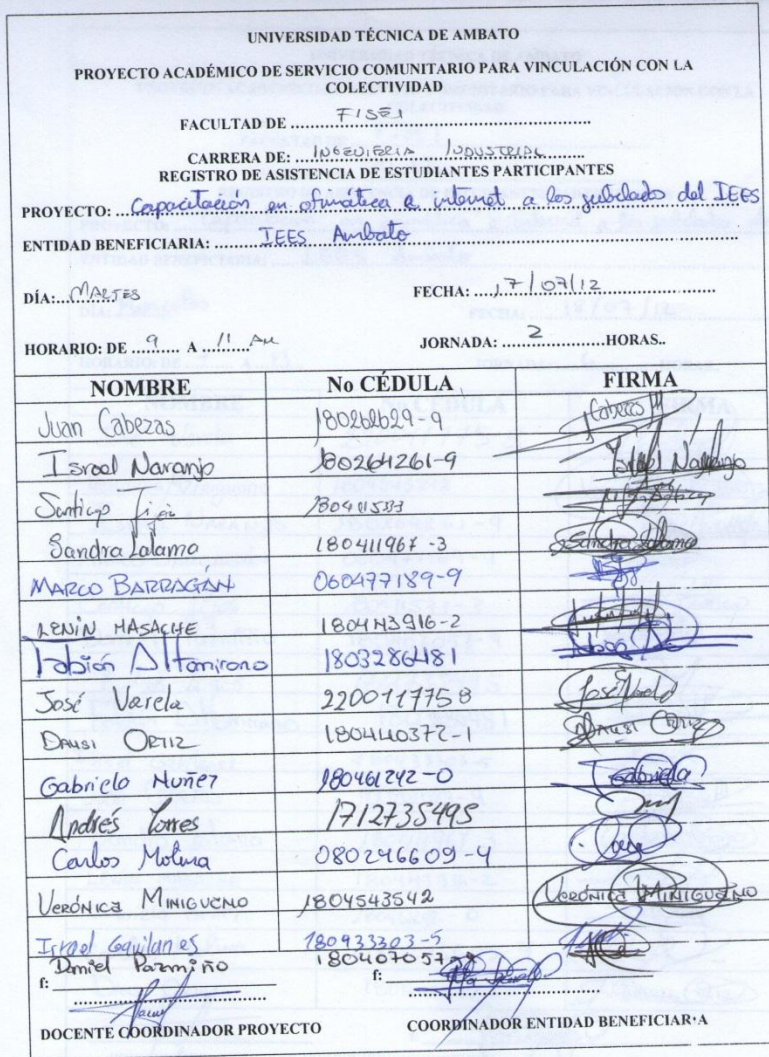 UNIVERSIDAD TÉCNICA DE AMBATO
PROYECTO ACADÉMICO DE SERVICIO COMUNITARIO PARA VINCULACIÓN CON LA
COLECTIVIDAD
FACULTAD DE FISEI
CARRERA DE: INGENIERIA INDUSTRIAL
REGISTRO DE ASISTENCIA DE ESTUDIANTES PARTICIPANTES
PROYECTO: Capacitación en ofimática e internet a los jubilados del IEES
ENTIDAD BENEFICIARIA: IEES Ambato
DÍA: MARTES FECHA: 17/07/12
HORARIO; DE 9 A 11 AM JORNADA: 2 HORAS..
NOMBRE No CÉDULA FIRMA
Juan Cabezas 180262629-9 Cabezas
Israel Naranjo 180264261-9 Israel Naranjo
Santiago
Sandra Lalama 180411967-3 Sandra Lalama
MARCO BARRAGÁN 060477189-9
LENIN MASACHE 180443916-2
Fabián Altamirano 1803286481
José Varela 2200117758 José Varela
DAYSI ORTIZ 180440372-1 DAYSI ORTIZ
Gabriela Nuñez 180461242-0 Gabriela
Andrés Torres 1712735495
Carlos Molina 080246609-4
VERÓNICA MINIGUANO 1804543542 VERÓNICA MINIGUANO
Israel 180933303-5
Daniel Parmiño
f: f:
DOCENTE COORDINADOR PROYECTO COORDINADOR ENTIDAD BENEFICIARIA